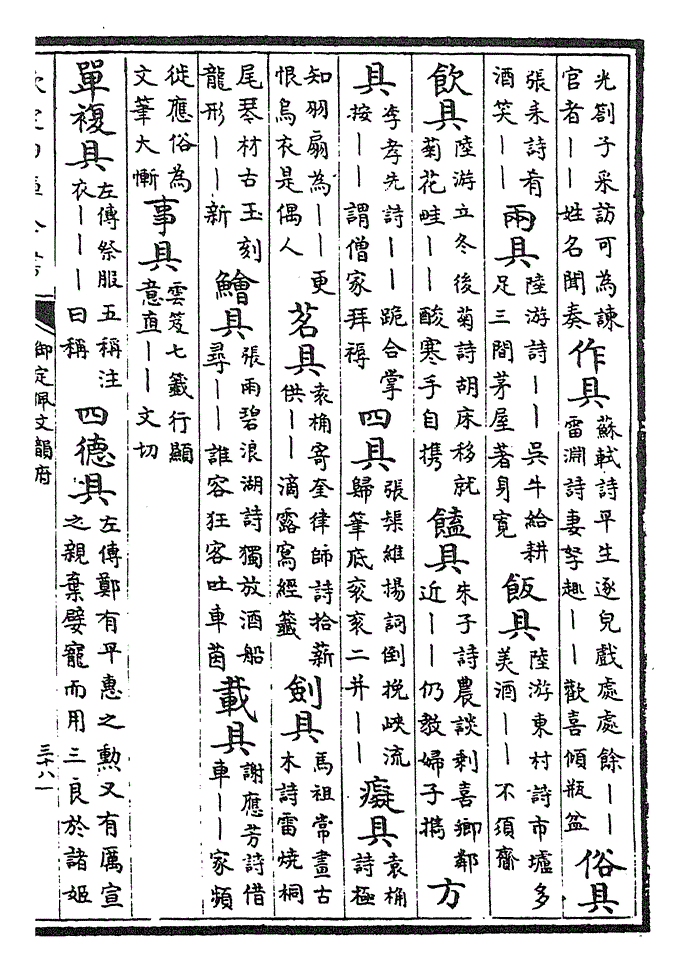 光劄子采訪可為諫官者丨丨姓名聞奏 作具 蘇軾詩平生逐兒戲處處餘丨丨雷淵詩妻孥趣丨丨歡喜傾瓶盆 俗具
張耒詩肴酒笑丨丨 兩具 陸游詩丨丨吳牛給耕足三間茅屋著身寬 飯具 陸游東村詩市壚多美酒丨丨不須齎
飲具 陸游立冬後菊詩胡床移就菊花畦丨丨酸寒手自携 饁具 朱子詩農談剩喜鄉鄰近丨丨仍教婦子擕 方
具 李孝先詩丨丨跪合掌按丨丨謂僧家拜褥 四具 張榘維揚詞倒挽峽流歸筆底衮衮二并丨丨 癡具 袁桷詩極
知羽扇為丨丨更恨烏衣是偶人 茗具 袁桷寄奎律師詩拾薪供丨丨滴露寫經籤 劍具 馬祖常畫古木詩雷燒桐
尾琴材古玉刻龍形丨丨新 鱠具 張雨碧浪湖詩獨放酒船尋丨丨誰容狂客吐車茵 載具 謝應芳詩借車丨丨家頻
徙應俗為文筆大慚 事具 雲笈七籤行顯意直丨丨文切
單複具 左傳祭服五稱注衣丨丨丨曰稱 四德具 左傳鄭有平惠之勲又有厲宣之親棄嬖寵而用三良於諸姬
御定佩文韻府
三十八